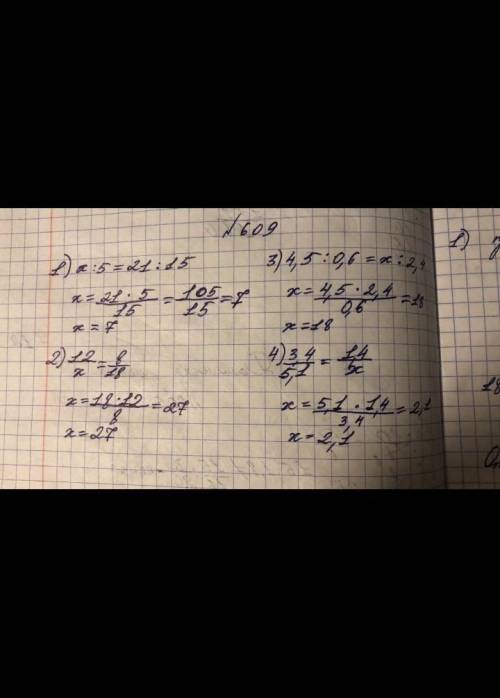 №609
1) x : 5 = 21 : 15
x = 21 · 5 / 15 = 105 / 15 = 7
x = 7
2) 12 / x = 8 / 18
x = 18 · 12 / 8 = 27
x = 27
3) 4,5 : 0,6 = x : 2,4
x = 4,5 · 2,4 / 0,6 = 18
x = 18
4) 3,4 / 5,1 = 1,4 / x
x = 5,1 · 1,4 / 3,4 = 2,1
x = 2,1
1)
18